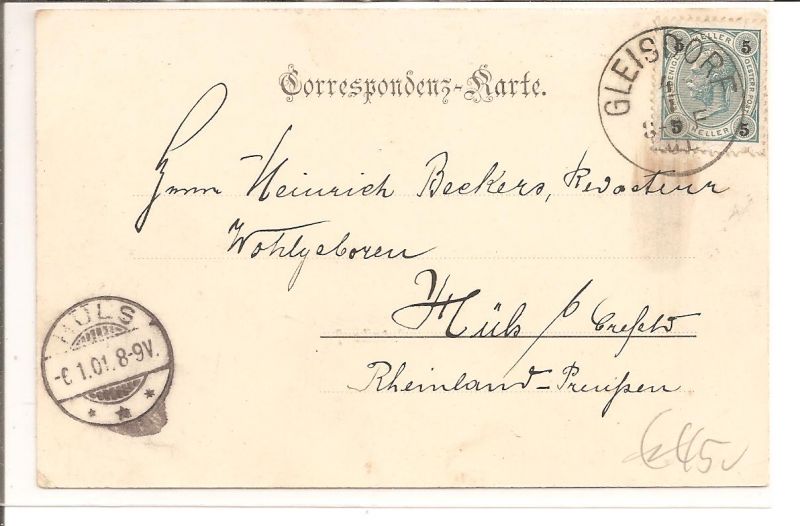 Correspondenz-Karte.
GLEISDORF
5 HELLER 5
5 HELLER 5
Herrn Heinrich Beckers, Redacteur
Wohlgeboren
Hüls b/ Crefeld
Rheinland-Preußen
HÜLS
-6 1.01. 8-9V.
* * *